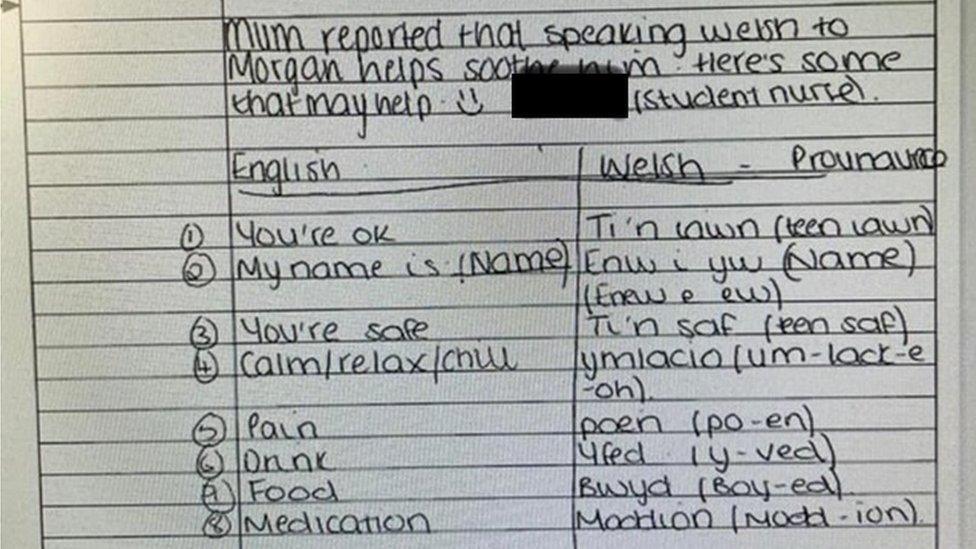 Mum reported that speaking welsh to
Morgan helps soothe him. Here's some
that may help. (student nurse).
English Welsh -
① You're ok Ti'n iawn (teen iawn)
② My name is (Name) Enw i yw (Name)
(Enew e ew)
③ You're safe Ti'n saf (teen saf)
④ Calm/relax/chill ymlacio (um-lack-e
-oh).
⑤ Pain poen (po-en)
⑥ Drink Yfed (y-ved)
Food Bwyd (Boy-ed)
⑧ Medication (Modd-ion).